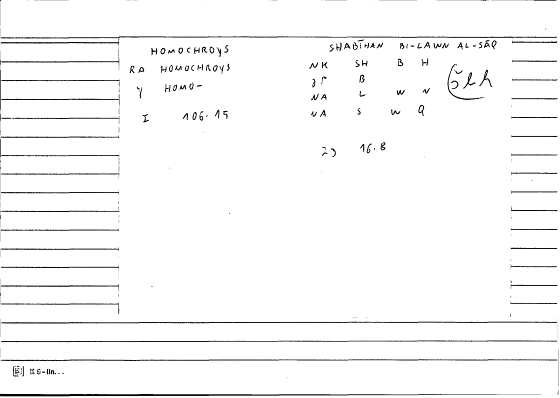 HOMOCHROYS
RA HOMOCHROYS
Y HOMO-
I 106.15
SHABĪHAN BI-LAWN AL-SĀQ
NK SH B H
B
NA L W N
NA S W Q
16.8